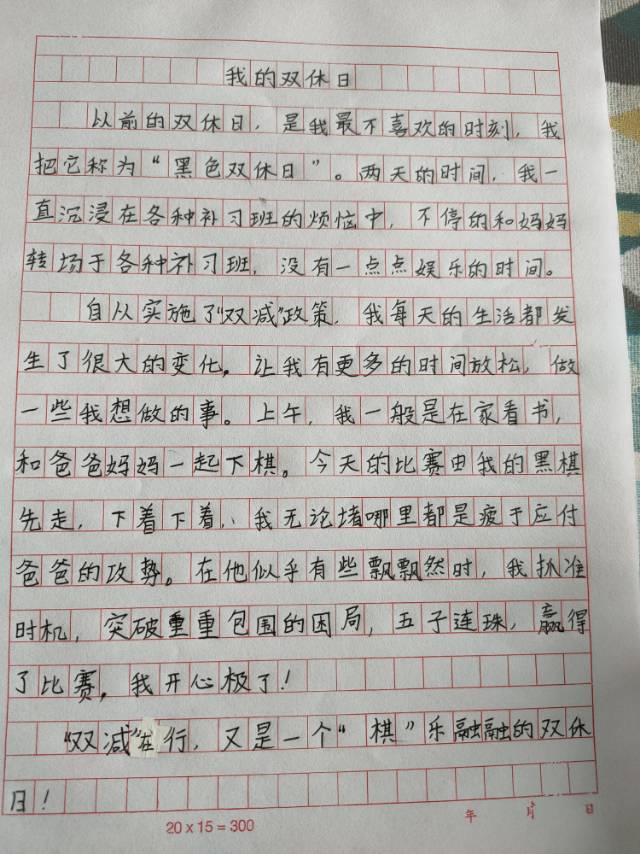 我的双休日
以前的双休日，是我最不喜欢的时刻，我
把它称为“黑色双休日”。两天的时间，我一
直沉浸在各种补习班的烦恼中，不停的和妈妈
转场于各种补习班，没有一点点娱乐的时间。
自从实施了“双减”政策，我每天的生活都发
生了很大的变化。让我有更多的时间放松，做
一些我想做的事。上午，我一般是在家看书，
和爸爸妈妈一起下棋。今天的比赛由我的黑棋
先走，下着下着，我无论堵哪里都是疲于应付
爸爸的攻势。在他似乎有些飘飘然时，我抓准
时机，突破重重包围的困局，五子连珠，赢得
了比赛，我开心极了！
“双减”在行，又是一个“棋”乐融融的双休
日！
20 x 15 = 300 年 月 日